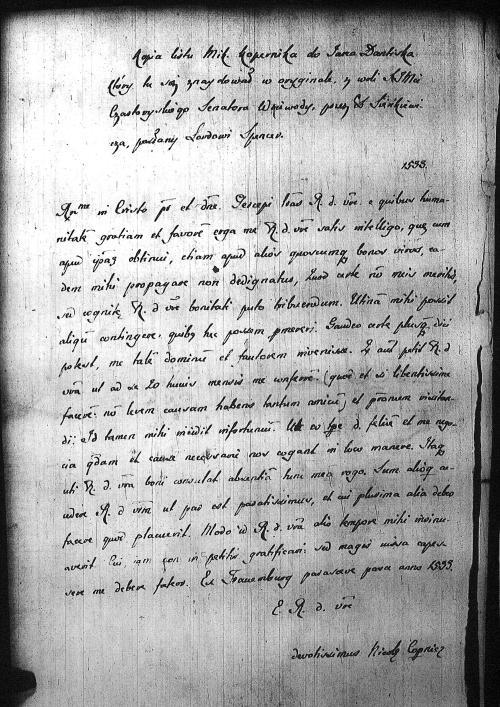 Kopia listu Mik. Kopernika do Jana Dantiszka
który tu się znaydował w oryginale, z woli
Czartoryskiego Senatora Woiewody, przez Sienkiewi
cza, posłany Lordowi Spencer.
1533.
Rme in Cristo pr et dne. Percepi lras R. d. vre. e quibus huma-
nitate gratiam et favore erga me R. d. vre satis intelligo, que cum
apud obtinui, etiam apud alios quoscumq bonos viros, ea-
dem mihi propagare non dedignatus, Quod certe no meis meritis,
sed cognite R. d. vre bonitati puto tribuendum. Utina mihi possit
aliqn contingere, quibq hec possem preveri. Gaudeo certe plusq dici
potest, me tale dominu et fautorem invenisse. aut petit R. d
vra ut ad se 20 huius mensis me conferre (quod et si libentissime
facere: no levem causam habens tantum amicu et pronum visitan-
di: Id tamen mihi incidit infortunii. Ut eo tpe d. felice et me nego-
cia qdam et cause necessarie nos cogant in loco manere. Itaq
uti R. d. vra boni consulat absentia hunc mea rogo. Sum alioq ac-
cedere R. d. vra ut par est paratissimus, et cui plurima alia debeo
facere quod placuerit. Modo id R. d. vra alio tempore mihi insinu-
averit. Cui iam non in petitis gratificari: sed magis iussa capes-
sere me debere fateor. Ex Frauenburg parasceve pasca anno 1533.
E. R. d. vre
devotissimus Nicols Copnicz